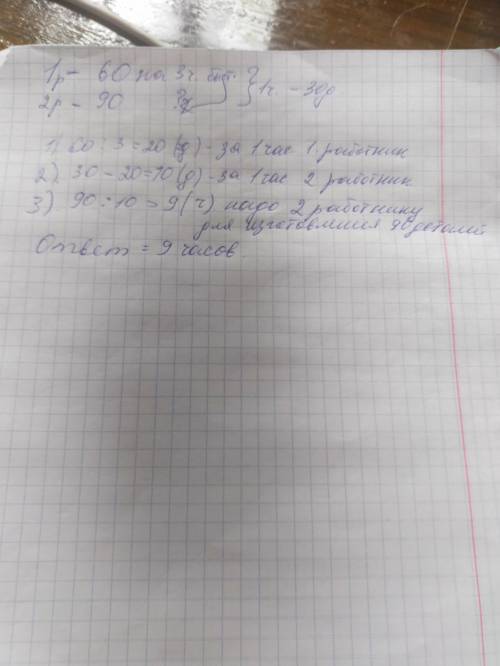 1р - 60 на 3ч. быст. } 1ч. - 30д
2р - 90 ?ч
1) 60 : 3 = 20 (д) - за 1 час 1 работник
2) 30 - 20 = 10 (д) - за 1 час 2 работник
3) 90 : 10 = 9 (ч) надо 2 работнику
для изготовления 90 деталей
Ответ = 9 часов.